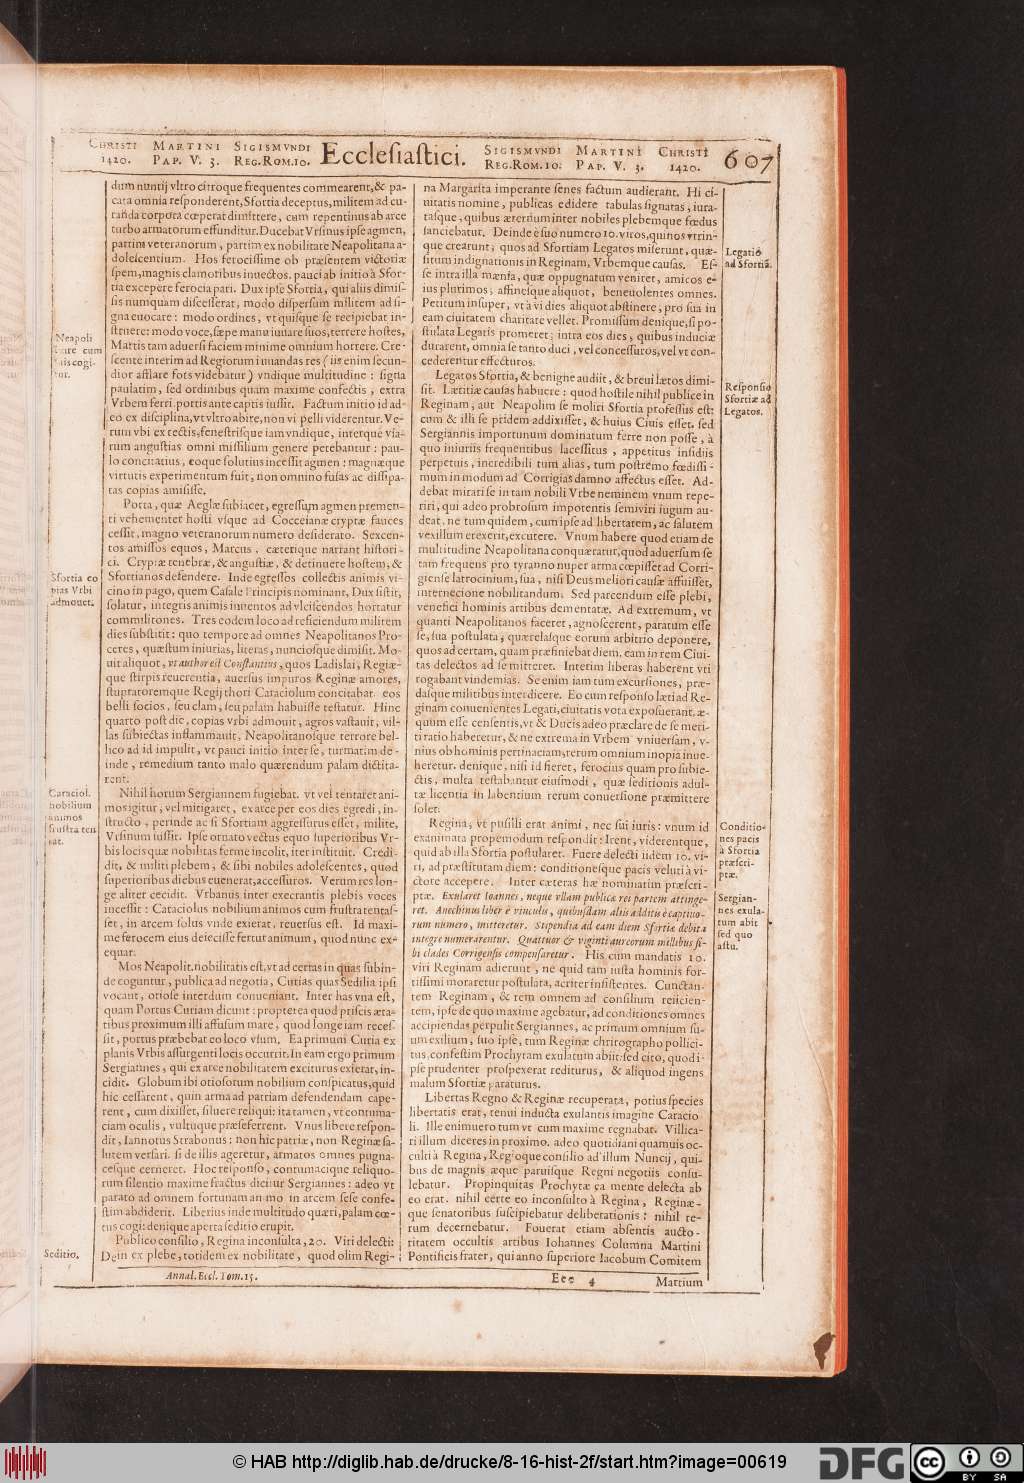 CHRISTI MARTINI SIGISMVNDI Ecclesiastici. SIGISMVNDI MARTINI CHRISTI 607
1420. PAP. V. 3. REG.ROM.10. REG.ROM.10. PAP. V. 3. 1420.
dum nuntij vltro citroque frequentes commearent,& pa-
cata omnia responderent, Sfortia deceptus, militem ad cu-
randa corpora cœperat dimittere, cum repentinus ab arce
turbo armatorum effunditur. Ducebat Vrsinus ipse agmen,
partim veteranorum, partim ex nobilitate Neapolitana a-
dolescentium. Hos ferocissime ob præsentem victoriæ
spem, magnis clamoribus inuectos. pauci ab initio à Sfor-
tia excepere ferocia pari. Dux ipse Sfortia, qui aliis dimis-
sis numquam discesserat, modo dispersum militem ad si-
gna euocare: modo ordines, vt quisque se recipiebat in-
struere: modo voce, sæpe manu iuuare suos, terrere hostes,
Martis tam aduersi faciem minime omnium horrere. Cre-
scente interim ad Regiorum iuuandas res (iis enim secun-
dior afflare fors videbatur) vndique multitudine: signa
paulatim, sed ordinibus quam maxime confectis, extra
Vrbem ferri. portis ante captis iussit. Factum initio id ad-
eo ex disciplina, vt vltro abite, non vi pelli viderentur. Ve-
rum vbi ex tectis, fenestrisque iam vndique, interque via-
rum angustias omni missilium genere petebantur: pau-
lo concitatius, eoque solutius incessit agmen: magnæque
virtutis experimentum fuit, non omnino fusas ac dissipa-
tas copias amisisse.
Porta, quæ Aeglæ subiacet, egressum agmen premen-
ti vehementer hosti vsque ad Cocceianæ cryptæ fauces
cessit, magno veteranorum numero desiderato. Sexcen-
tos amissos equos, Marcus, cæterique narrant histori-
ci. Cryptæ tenebræ, & angustiæ, & detinuere hostem, &
Sfortianos defendere. Inde egressos collectis animis vi-
cino in pago, quem Casale Principis nominant, Dux sistit,
solatur, integris animis iuuentos ad vlciscendos hortatur
commilitones. Tres eodem loco ad reficiendum militem
dies substitit: quo tempore ad omnes Neapolitanos Pro-
ceres, quæstum iniurias, literas, nunciosque dimisit. Mo-
uit aliquot, vt author est Constantius, quos Ladislai, Regiæ-
que stirpis reuerentia, auersus impuros Reginæ amores,
stupratoremque Regij thori Caraciolum concitabat. eos
belli socios, seu clam, seu palam habuisse testatur. Hinc
quarto post die, copias vrbi admouit, agros vastauit, vil-
las subiectas inflammauit, Neapolitanosque terrore bel-
lico ad id impulit, vt pauci initio inter se, turmatim de-
inde, remedium tanto malo quærendum palam dictita-
rent.
Nihil horum Sergiannem fugiebat. vt vel tentaret ani-
mos igitur, vel mitigaret, ex arce per eos dies egredi, in-
structo, perinde ac si Sfortiam aggressurus esset, milite,
Vrsinum iussit. Ipse ornato vectus equo superioribus Vr-
bis locis quæ nobilitas ferme incolit, iter instituit. Credi-
dit, & militi plebem, & sibi nobiles adolescentes, quod
superioribus diebus euenerat, accessuros. Verum res lon-
ge aliter cecidit. Vrbanus inter execrantis plebis voces
incessit: Caraciolus nobilium animos cum frustra tentas-
set, in arcem solus vnde exierat, reuersus est. Id maxi-
me ferocem eius deiecisse fertur animum, quod nunc ex-
equar.
Mos Neapolit. nobilitatis est, vt ad certas in quas subin-
de coguntur, publica ad negotia, Curias quas Sedilia ipsi
vocant, otiose interdum conueniant. Inter has vna est,
quam Portus Curiam dicunt: propterea quod priscis æta-
tibus proximum illi affusum mare, quod longe iam reces-
sit, portus præbebat eo loco vsum. Ea primum Curia ex
planis Vrbis assurgenti locis occurrit. In eam ergo primum
Sergiannes, qui ex arce nobilitatem exciturus exierat, in-
cidit. Globum ibi otiosorum nobilium conspicatus, quid
hic cessarent, quin arma ad patriam defendendam cape-
rent, cum dixisset, siluere reliqui: ita tamen, vt contuma-
ciam oculis, vultuque præseferrent. Vnus libere respon-
dit, Iannotus Strabonus: non hic patriæ, non Reginæ sa-
lutem versari. si de illis ageretur, armatos omnes pugna-
cesque cerneret. Hoc responso, contumacique reliquo-
rum silentio maxime fractus dicitur Sergiannes: adeo vt
parato ad omnem fortunam animo in arcem sese confe-
stim abdiderit. Liberius inde multitudo quæri, palam cœ-
tus cogi: denique aperta seditio erupit.
Publico consilio, Regina inconsulta, 20. Viri delecti:
Dein ex plebe, totidem ex nobilitate, quod olim Regi-
Neapoli
tur.
Sfortia co
pias Vrbi
admouet.
Caraciol.
nobilium
animos
frustra ten
tat.
Seditio.
na Margarita imperante senes factum audierant. Hi ci-
uitatis nomine, publicas edidere tabulas signatas, iura-
tasque, quibus æternum inter nobiles plebemque fœdus
sanciebatur. Deinde è suo numero 10. viros, quinos vtrin-
que crearunt; quos ad Sfortiam Legatos miserunt, quæ-
situm indignationis in Reginam, Vrbemque causas. Es-
se intra illa mœnia, quæ oppugnatum veniret, amicos e-
ius plurimos; affinesque aliquot, beneuolentes omnes.
Petitum insuper, vt à vi dies aliquot abstinere, pro sua in
eam ciuitatem charitate vellet. Promissum denique, si po-
stulata Legatis promeret; intra eos dies, quibus induciæ
durarent, omnia se tanto duci, vel concessuros, vel vt con-
cederentur effecturos.
Legatos Sfortia, & benigne audiit, & breui lætos dimi-
sit. Lætitiæ causas habuere: quod hostile nihil publice in
Reginam, aut Neapolim se moliri Sfortia professus est:
cum & illi se pridem addixisset, & huius Ciuis esset. sed
Sergiannis importunum dominatum ferre non posse, à
quo iniuriis frequentibus lacessitus, appetitus insidiis
perpetuis, incredibili tum alias, tum postremo fœdissi-
mum in modum ad Corrigias damno affectus esset. Ad-
debat mirari se in tam nobili Vrbe neminem vnum repe-
riri, qui adeo probrosum impotentis semiviri iugum au-
deat, ne tum quidem, cum ipse ad libertatem, ac salutem
vexillum erexerit, excutere. Vnum habere quod etiam de
multitudine Neapolitana conquæratur, quod aduersum se
tam frequens pro tyranno nuper arma cœpisset ad Corri-
giense latrocinium, sua, nisi Deus meliori causæ affuisset,
internecione nobilitandum. Sed parcendum esse plebi,
venefici hominis artibus dementatæ. Ad extremum, vt
quanti Neapolitanos faceret, agnoscerent, paratum esse
se, sua postulata, quærelasque eorum arbitrio deponere,
quos ad certam, quam præfiniebat diem. eam in rem Ciui-
tas delectos ad se mitteret. Interim liberas haberent vti
rogabant vindemias. Se enim iam tum excursiones, præ-
dasque militibus interdicere. Eo cum responso læti ad Re-
ginam conuenientes Legati, ciuitatis vota exposuerant. æ-
quum esse censentis, vt & Ducis adeo præclare de se meri-
ti ratio haberetur, & ne extrema in Vrbem vniuersam, v-
nius ob hominis pertinaciam, rerum omnium inopia inue-
heretur. denique, nisi id fieret, ferocius quam pro subie-
ctis, multa testabantur eiusmodi, quæ seditionis adul-
tæ licentia in labentium rerum conuersione præmittere
solet.
Regina, vt pusilli erat animi, nec sui iuris: vnum id
exanimata propemodum respondit: Irent, viderentque,
quid ab illa Sfortia postularet. Fuere delecti iidem 10. vi-
ri, ad præstitutam diem: conditionesque pacis veluti à vi-
ctore accepere. Inter cæteras hæ nominatim præscri-
ptæ. Exularet Ioannes, neque vllam publicæ rei partem attinge-
ret. Anechinus liber è vinculis, quibusdam aliis additis è captiuo-
rum numero, mitteretur. Stipendia ad eam diem Sfortiæ debita
integre numerarentur. Quattuor & viginti aureorum millibus si-
bi clades Corrigensis compensaretur. His cum mandatis 10.
viri Reginam adierunt, ne quid tam iusta hominis for-
tissimi moraretur postulata, acriter insistentes. Cunctan-
tem Reginam, & rem omnem ad consilium reiicien-
tem, ipse de quo maxime agebatur, ad conditiones omnes
accipiendas perpulit Sergiannes, ac primum omnium su-
um exilium, suo ipse, tum Reginæ chirographo pollici-
tus, confestim Prochytam exulatum abiit: sed cito, quod i-
pse prudenter prospexerat rediturus, & aliquod ingens
malum Sfortiæ paraturus.
Libertas Regno & Reginæ recuperata, potius species
libertatis erat, tenui inducta exulantis imagine Caracio
li. Ille enimuero tum vt cum maxime regnabat. Villica-
ri illum diceres in proximo. adeo quotidiani quamuis oc-
culti à Regina, Regioque consilio ad illum Nuncij, qui-
bus de magnis æque paruisque Regni negotiis consu-
lebatur. Propinquitas Prochytæ ea mente delecta ab
eo erat. nihil certe eo inconsulto à Regina, Reginæ-
que senatoribus suscipiebatur deliberationis: nihil re-
rum decernebatur. Fouerat etiam absentis aucto-
ritatem occultis artibus Iohannes Columna Martini
Pontificis frater, qui anno superiore Iacobum Comitem
Legatio
ad Sfortiã.
Responsio
Sfortiæ ad
Legatos.
Conditio-
nes pacis
à Sfortia
præscri-
ptæ.
Sergian-
nes exula-
tum abit
sed quo
astu.
Annal. Eccl. Tom. 15. Eee 4 Martium
© HAB http://diglib.hab.de/drucke/8-16-hist-2f/start.htm?image=00619
DFG cc BY SA